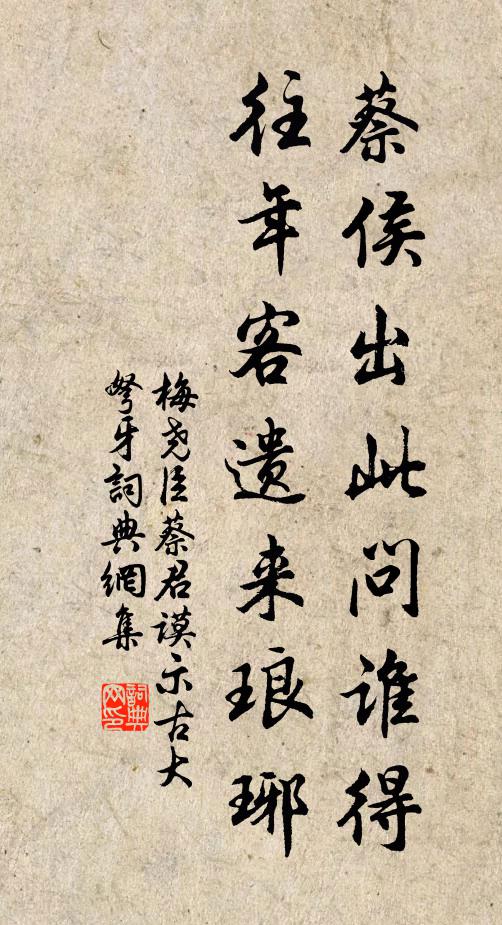 蔡侯出此问谁得
往年客遗来琅琊
梅尧臣蔡君谟示古大
弩牙詞典網集
詞典
网印